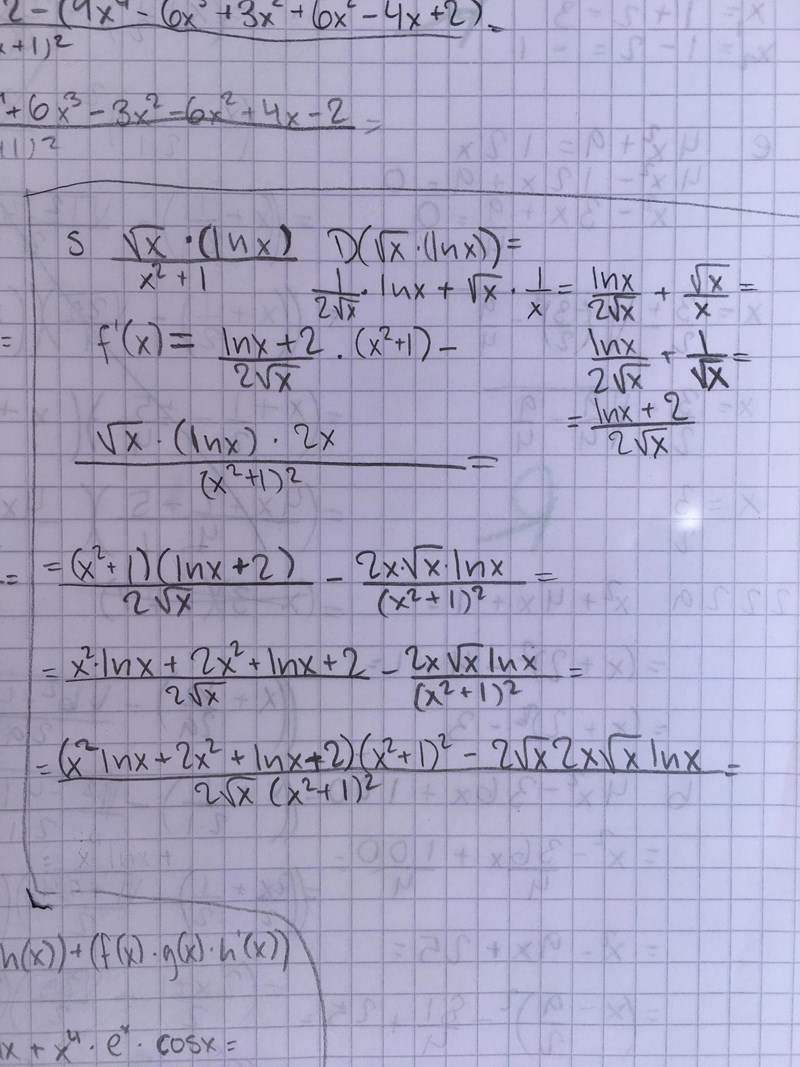 2 - (9x⁴ - 6x³ + 3x² + 6x² - 4x + 2) =
x + 1)²
+ 6x³ - 3x² - 6x² + 4x - 2 =
1)²
s √x · (ln x) / x² + 1 D(√x · (ln x)) =
1/2√x · ln x + √x · 1/x = ln x/2√x + √x/x =
= f'(x) = ln x + 2/2√x · (x² + 1) - ln x/2√x + 1/√x =
= ln x + 2/2√x
√x · (ln x) · 2x/(x² + 1)² =
= = (x² + 1)(ln x + 2)/2√x - 2x · √x · ln x/(x² + 1)² =
= x² · ln x + 2x² + ln x + 2/2√x - 2x √x ln x/(x² + 1)² =
= (x² ln x + 2x² + ln x + 2)(x² + 1)² - 2√x 2x √x ln x/2√x (x² + 1)² =
h(x)) + (f(x) · g(x) · h'(x))
x + x⁴ · eˣ · cos x =